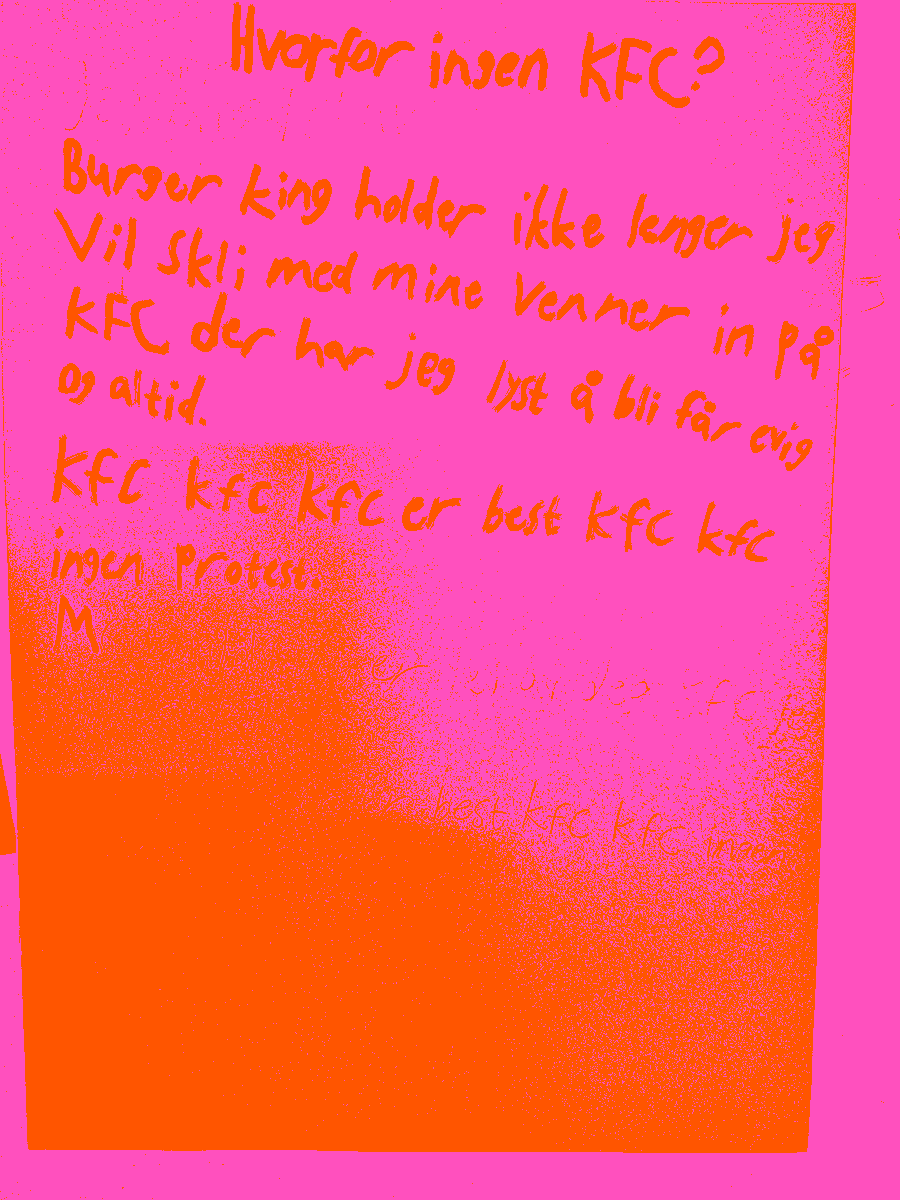 Hvorfor ingen KFC?
Burger king holder ikke lenger jeg
Vil Skli med mine Venner in på
KFC der har jeg lyst å bli får evig
og altid.
KfC kfc KfC er best KfC kfc
ingen Protest.
M
best kfc kfc